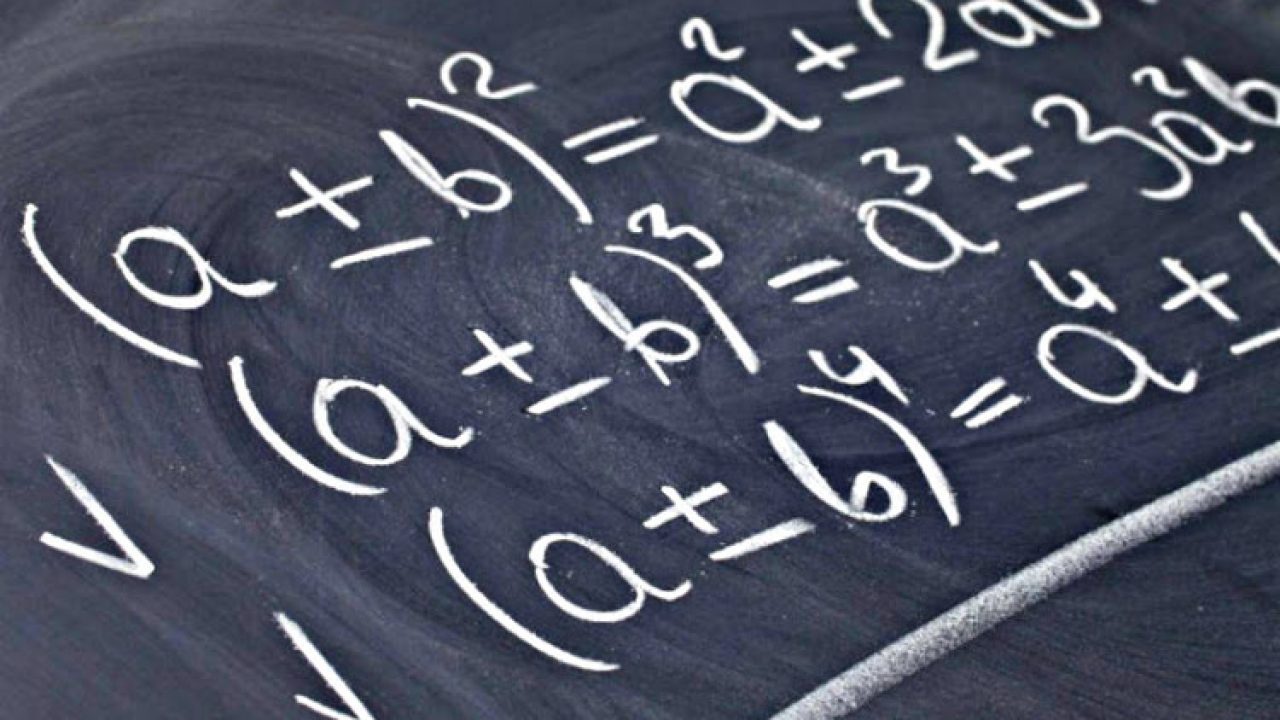 (a ± b)² = a² ± 2a
(a ± b)³ = a³ ± 3a²b
(a ± b)⁴ = a⁴ ±
V
V